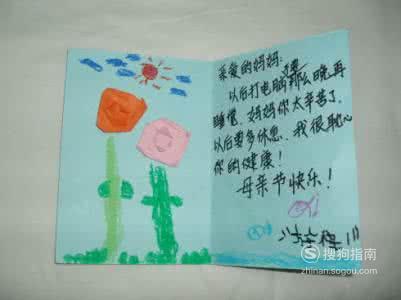 亲爱的妈妈:
以后打电脑那么晚再
睡觉,妈妈你太辛苦了,
以后要多休息,我很耽心
你的健康!
母亲节快乐!
搜狗指南
zhinan.sogou.com